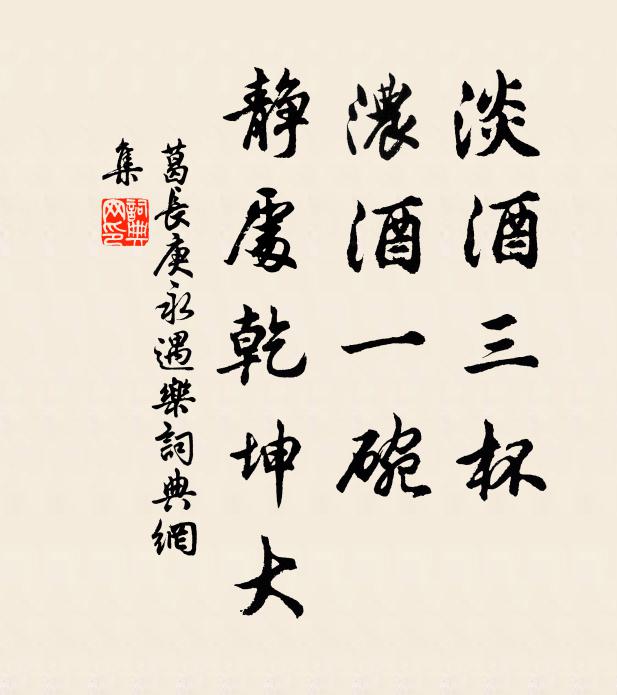 淡酒三杯
濃酒一碗
靜處乾坤大
葛長庚永遇樂詞典網
集
詞典
网印